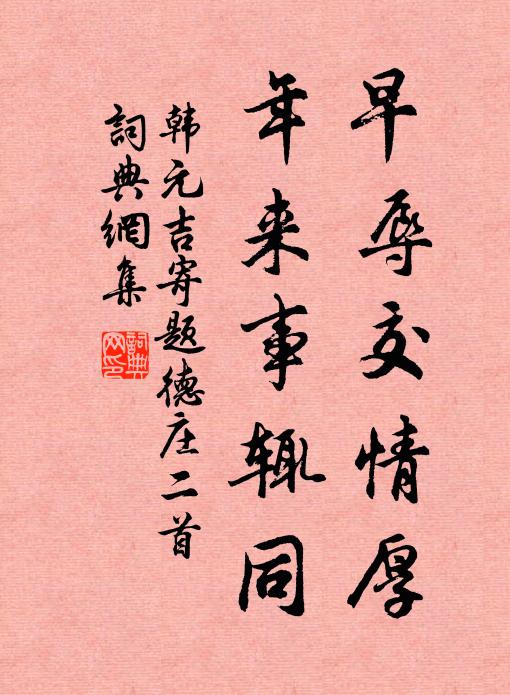 早辱交情厚
年来事辄同
韩元吉寄题德庄二首
詞典網集
詞典網印